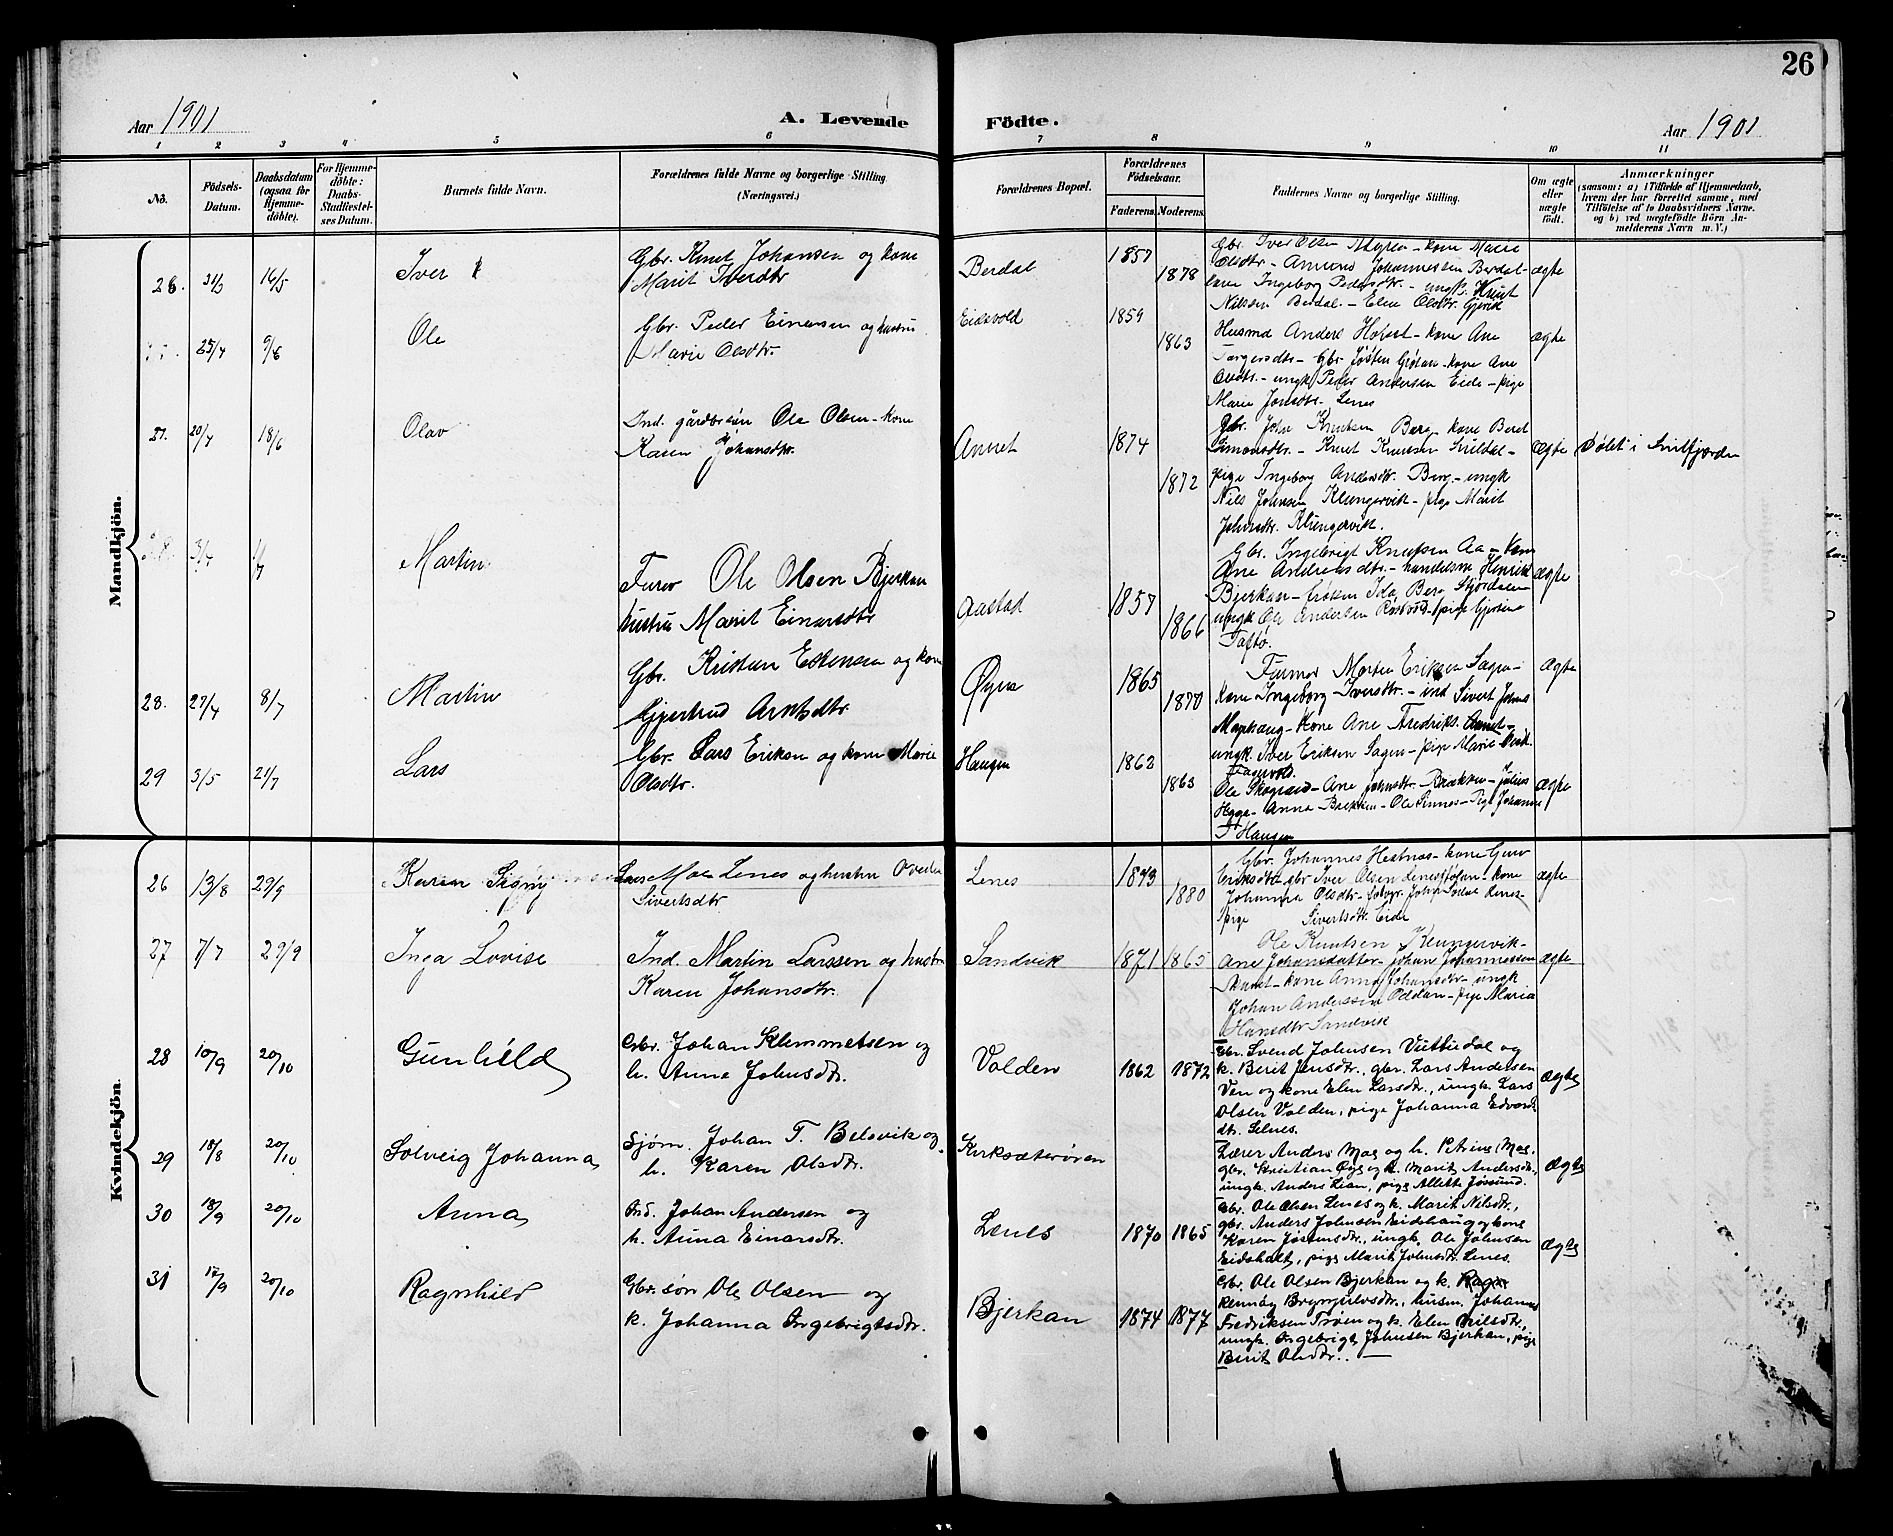 26
Aar 1901
A. Levende
Födte.
Aar 1901
1 2 3 4 5 6 7 8 9 10 11
No.
Födsels-
Datum.
Daabsdatum
(ogsaa for
Hjemme-
döbte).
For Hjemme-
döbte:
Daabs-
Stadfæstel-
ses Datum.
Barnets fulde Navn.
Forældrenes fulde Navne og borgerlige Stilling
(Næringsvei.)
Forældrenes Bopæl.
Forældrenes
Födselsaar.
Faderens. Moderens.
Faddernes Navne og borgerlige Stilling.
Om ægte
eller
uægte
födt.
Anmærkninger
(saasom: a) i Tilfælde af Hjemmedaab,
hvem der har forrettet samme, med
Tilföielse af to Daabsvidners Navne.
og b) ved uægtefödte Börn An-
melderens Navn m. V.)
Mandkjön.
31/3 16/5 Iver
Gbr. Knut Johansen og kone
Marit Iverdtr
Berdal 1857 1878
Gbr. Iver Olsen kone Marie
Olsdtr - Amund Johannessen Berdal-
kone Ingeborg Pedersdtr. - ungk. Knut
Nilsen Berdal - Elen Olsdtr.
ægte
25/4 9/6 Ole
Gbr. Peder Einarsen og hustru
Marie Olsdtr.
Eidsvold 1859 1863
Husmd Anders kone Ane
Gbr. Jösten kone Ane
Olsdtr. - ungk Peder Andersen Eide - pige
Marie Jonsdtr. Lenes
ægte
27. 20/4 18/6 Olav
Ind. gårdbrsön Ole Olsen - kone
Karen Johansdtr.
Aunet 1874 1872
Gbr. John Knutsen Berg kone Beret
Simonsdtr. - Knut Knutsen
pige Ingeborg Andersdtr. Berg - ungk
Nils Johnsen Klungervik - pige Marit
Johnsdtr. Klungervik.
ægte
Döbt i Snilfjorden
3/4 1/7 Martin
Furer Ole Olsen Bjerkan
hustru Marit Einarsdtr
Aastad 1857 1866
Gbr. Ingebrigt Knutsen Aa - kone
Ane Andreasdtr - handelsm Henrik
Bjerkan - fröken Ida Berg Stjördalen
ungk Ole Andersen pige
Taftö.
ægte
28. 27/4 8/7 Martin
Gbr. Kristian Estensen og kone
Gjertrud Arntsdtr
Öyen 1865 1870
Furmd Morten Eriksen Sagen -
kone Ingeborg Iversdtr. - ind Sivert Johns
kone Ane Fredriks.
ungk. Iver Eriksen Sagen - pige Marie
ægte
29 3/5 21/7 Lars
Gbr. Lars Eriksen og kone Marie
Olsdtr.
Haugen 1862 1863
Ole Skogrand - Ane Johnsdtr - Brækken - Julius
Hygge - Anna Brækken - Ole - Pige Johanne
Haugen
ægte
Kvindekjön.
26 13/8 29/9 Karen Signy
Lars Moe Lenes og hustru
Sivertsdtr
Lenes 1873 1880
Gbr. Johannes Hestnes - kone Guro
Eriksdtr gbr Iver Olsen Lenes kone
Johanna Olsdtr -
pige Sivertsdtr. Eide
ægte
27 7/7 29/9 Inga Lovise
Ind. Martin Larssen og hustru
Karen Johansdtr.
Sandvik 1871 1865
Ole Knutsen Klungervik -
Ane Johansdatter - Johan Johannessen
Aunet - kone Anna Johansdtr - ungk
Johan Anderssen Oddan - pige Maria
Hansdtr Sandvik
ægte
28 10/9 20/10 Gunhild
Gbr. Johan Klemmetsen og
h. Anne Johnsdtr.
Volden 1862 1872
Gbr. Svend Johnsen Vuttudal og
k. Berit Jensdtr., gbr. Lars Andersen
Ven og kone Elen Larsdtr., ungk. Lars
Olsen Volden, pige Johanna Edvards
dtr. Selnes.
ægte
29 18/8 20/10 Solveig Johanna
Sjöm. Johan T. Belsvik og
h. Karen Olsdtr.
Kirksæterören
Lærer Anders Moe og h. Petrine Moe,
gbr. Kristian Öye og k. Marit Andersdtr.,
ungk. Anders Lian, pige Allette Jössund.
ægte
30 18/9 20/10 Anna
Ind. Johan Andersen og
h. Anna Einarsdtr.
Lenes 1870 1865
Gbr. Ole Olsen Lenes og k. Marit Nilsdtr.,
gbr. Anders Johnsen Eidshaug og kone
Karen Jöstensdtr., ungk. Ole Johnsen
Eidshalt, pige Marit Johnsdtr. Lenes.
ægte
31 17/9 20/10 Ragnhild
Gbr.sön Ole Olsen og
k. Johanna Ingebrigtsdtr.
Bjerkan 1874 1877
Gbr. Ole Olsen Bjerkan og k.
Rennög Brynjulvsdtr., husm. Johannes
Fredriksen Tröen og k. Elen Nilsdtr.,
ungk. Ingebrigt Johnsen Bjerkan, pige
Berit Olsdtr. . —